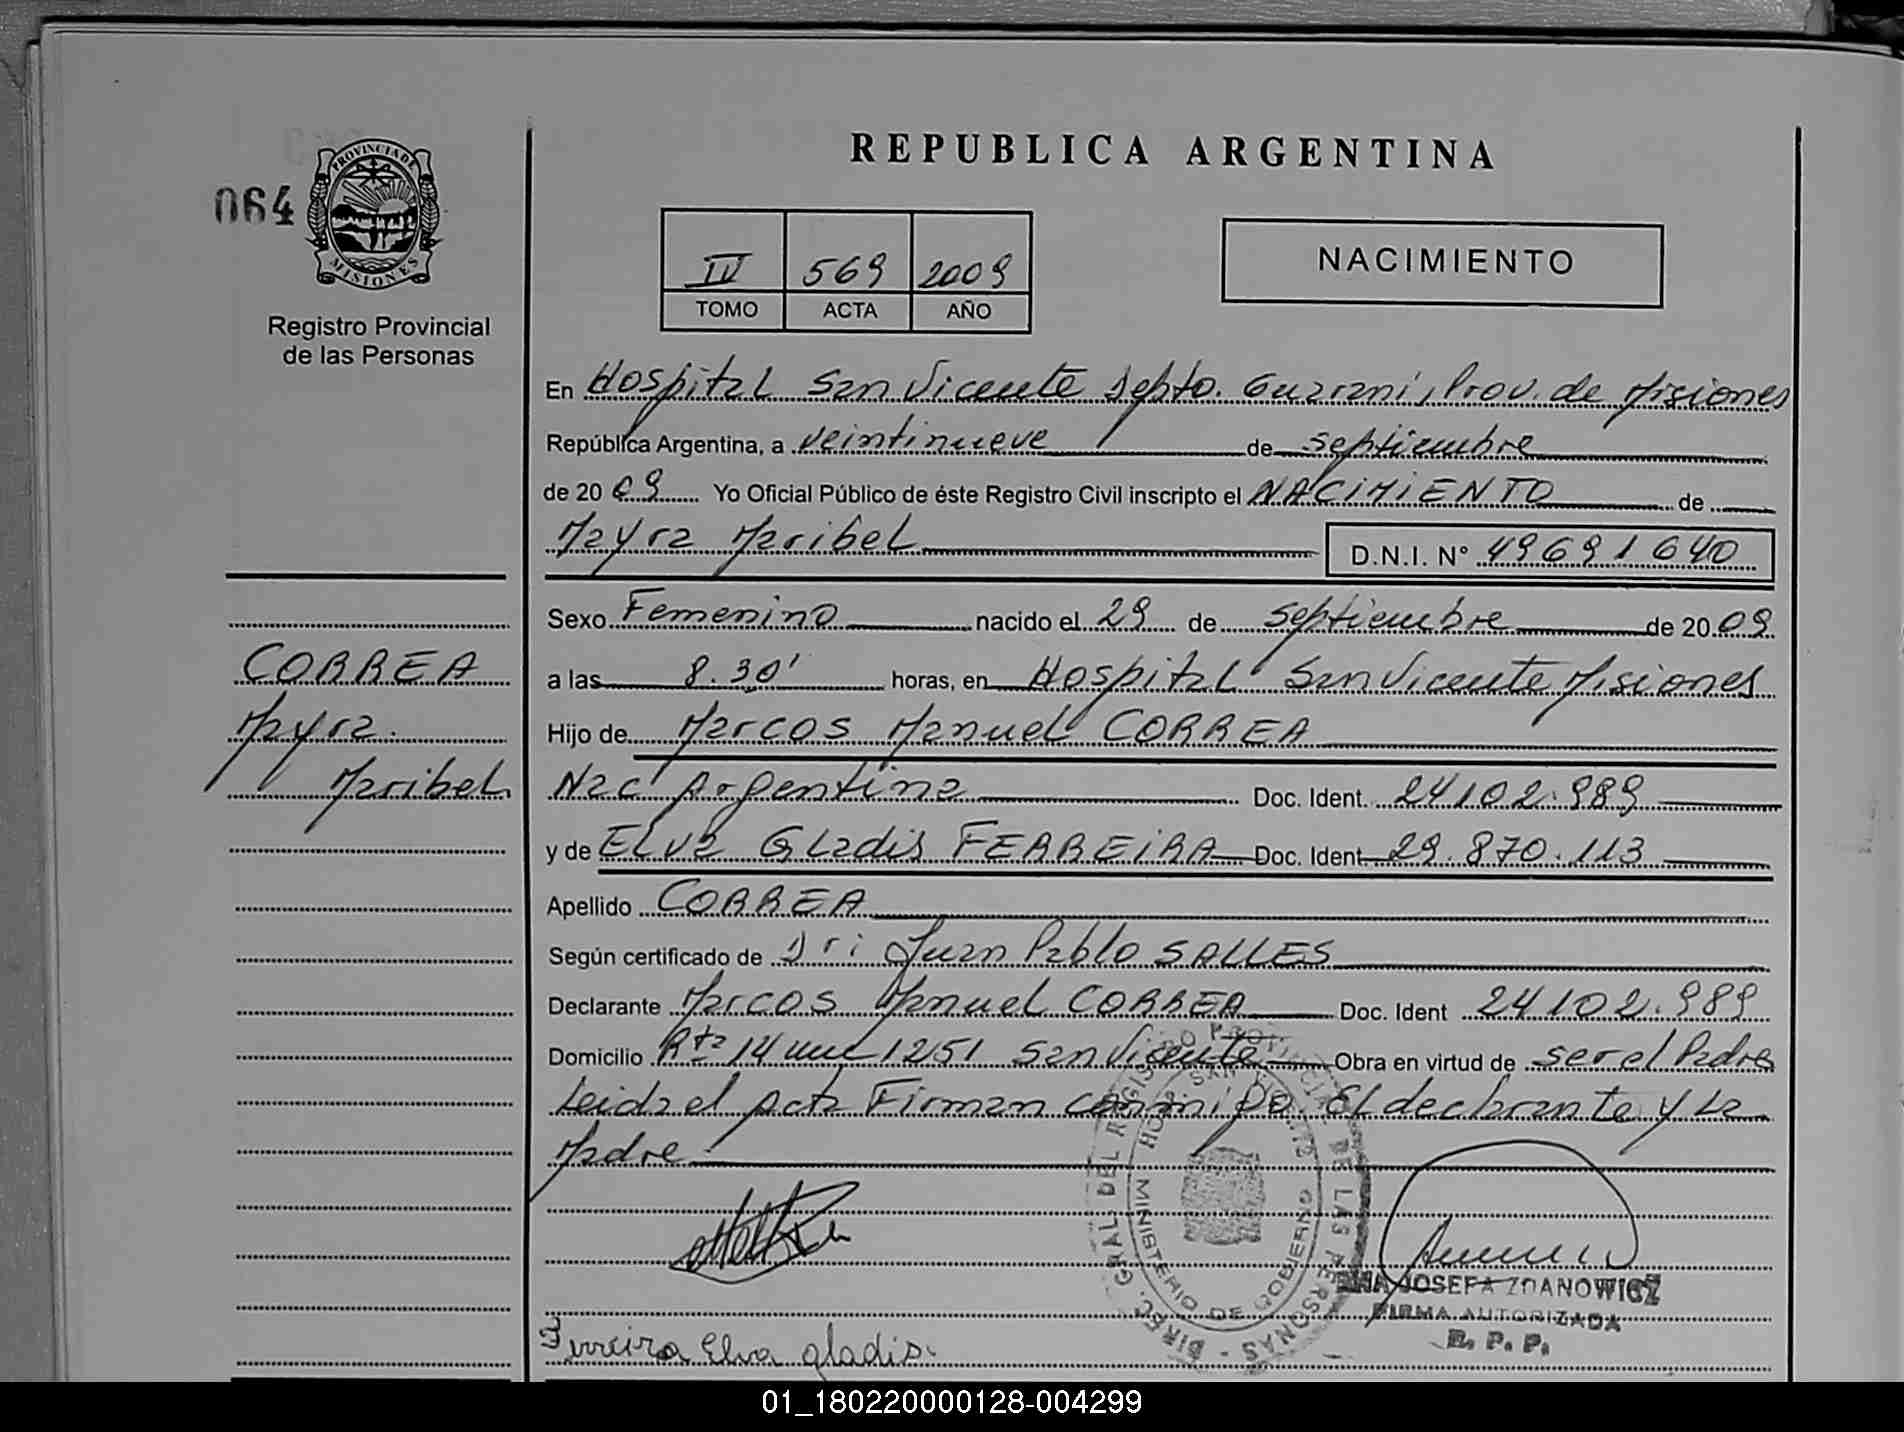 REPUBLICA ARGENTINA
064
PROVINCIA DE
MISIONES
Registro Provincial
de las Personas
IV 569 2009
TOMO ACTA AÑO
NACIMIENTO
En Hospital San Vicente Depto. Guarani, Prov. de Misiones
República Argentina, a veintinueve de septiembre
de 2009 Yo Oficial Público de éste Registro Civil inscripto el NACIMIENTO de
Mayra Maribel D.N.I. N° 49691640
Sexo Femenino nacido el 29 de septiembre de 2009
a las 8.30' horas, en Hospital San Vicente Misiones
Hijo de Marcos Manuel CORREA
Nac Argentina Doc. Ident. 24102.989
y de Elva Gladis FERREIRA Doc. Ident 29.870.113
Apellido CORREA
Según certificado de Dr: Juan Pablo SALLES
Declarante Marcos Manuel CORREA Doc. Ident 24102.989
Domicilio Rta 14 1251 San Vicente Obra en virtud de ser el Padre
Leida el Acta Firman conmigo. El declarante y La
Madre
CORREA
Mayra
Maribel
DIREC. GRAL. DEL REGISTRO PROVINCIAL DE LAS PERSONAS -
MINISTERIO DE GOBIERNO
HOSP. SAN VICENTE
JOSEFA ZDANOWICZ
FIRMA AUTORIZADA
R. P. P.
Ferreira Elva gladis.
01_180220000128-004299